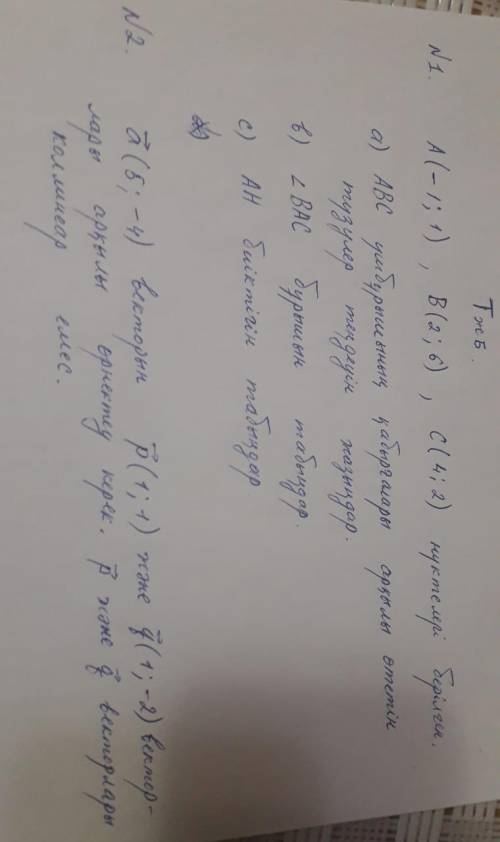 ТжБ.
№1. A(-1; 1), B(2; 6), C(4; 2) нүктелері берілген.
a) ABC үшбұрышының қабырғалары арқылы өтетін
түзулер теңдеуін жазыңдар.
b) ∠BAC бұрышын табыңдар.
c) AH биіктігін табыңдар.
№2. a⃗(5; -4) векторын p⃗(1; 1) және q⃗(1; -2) вектор-
лары арқылы өрнектеу керек. p⃗ және q⃗ векторлары
коллинеар емес.